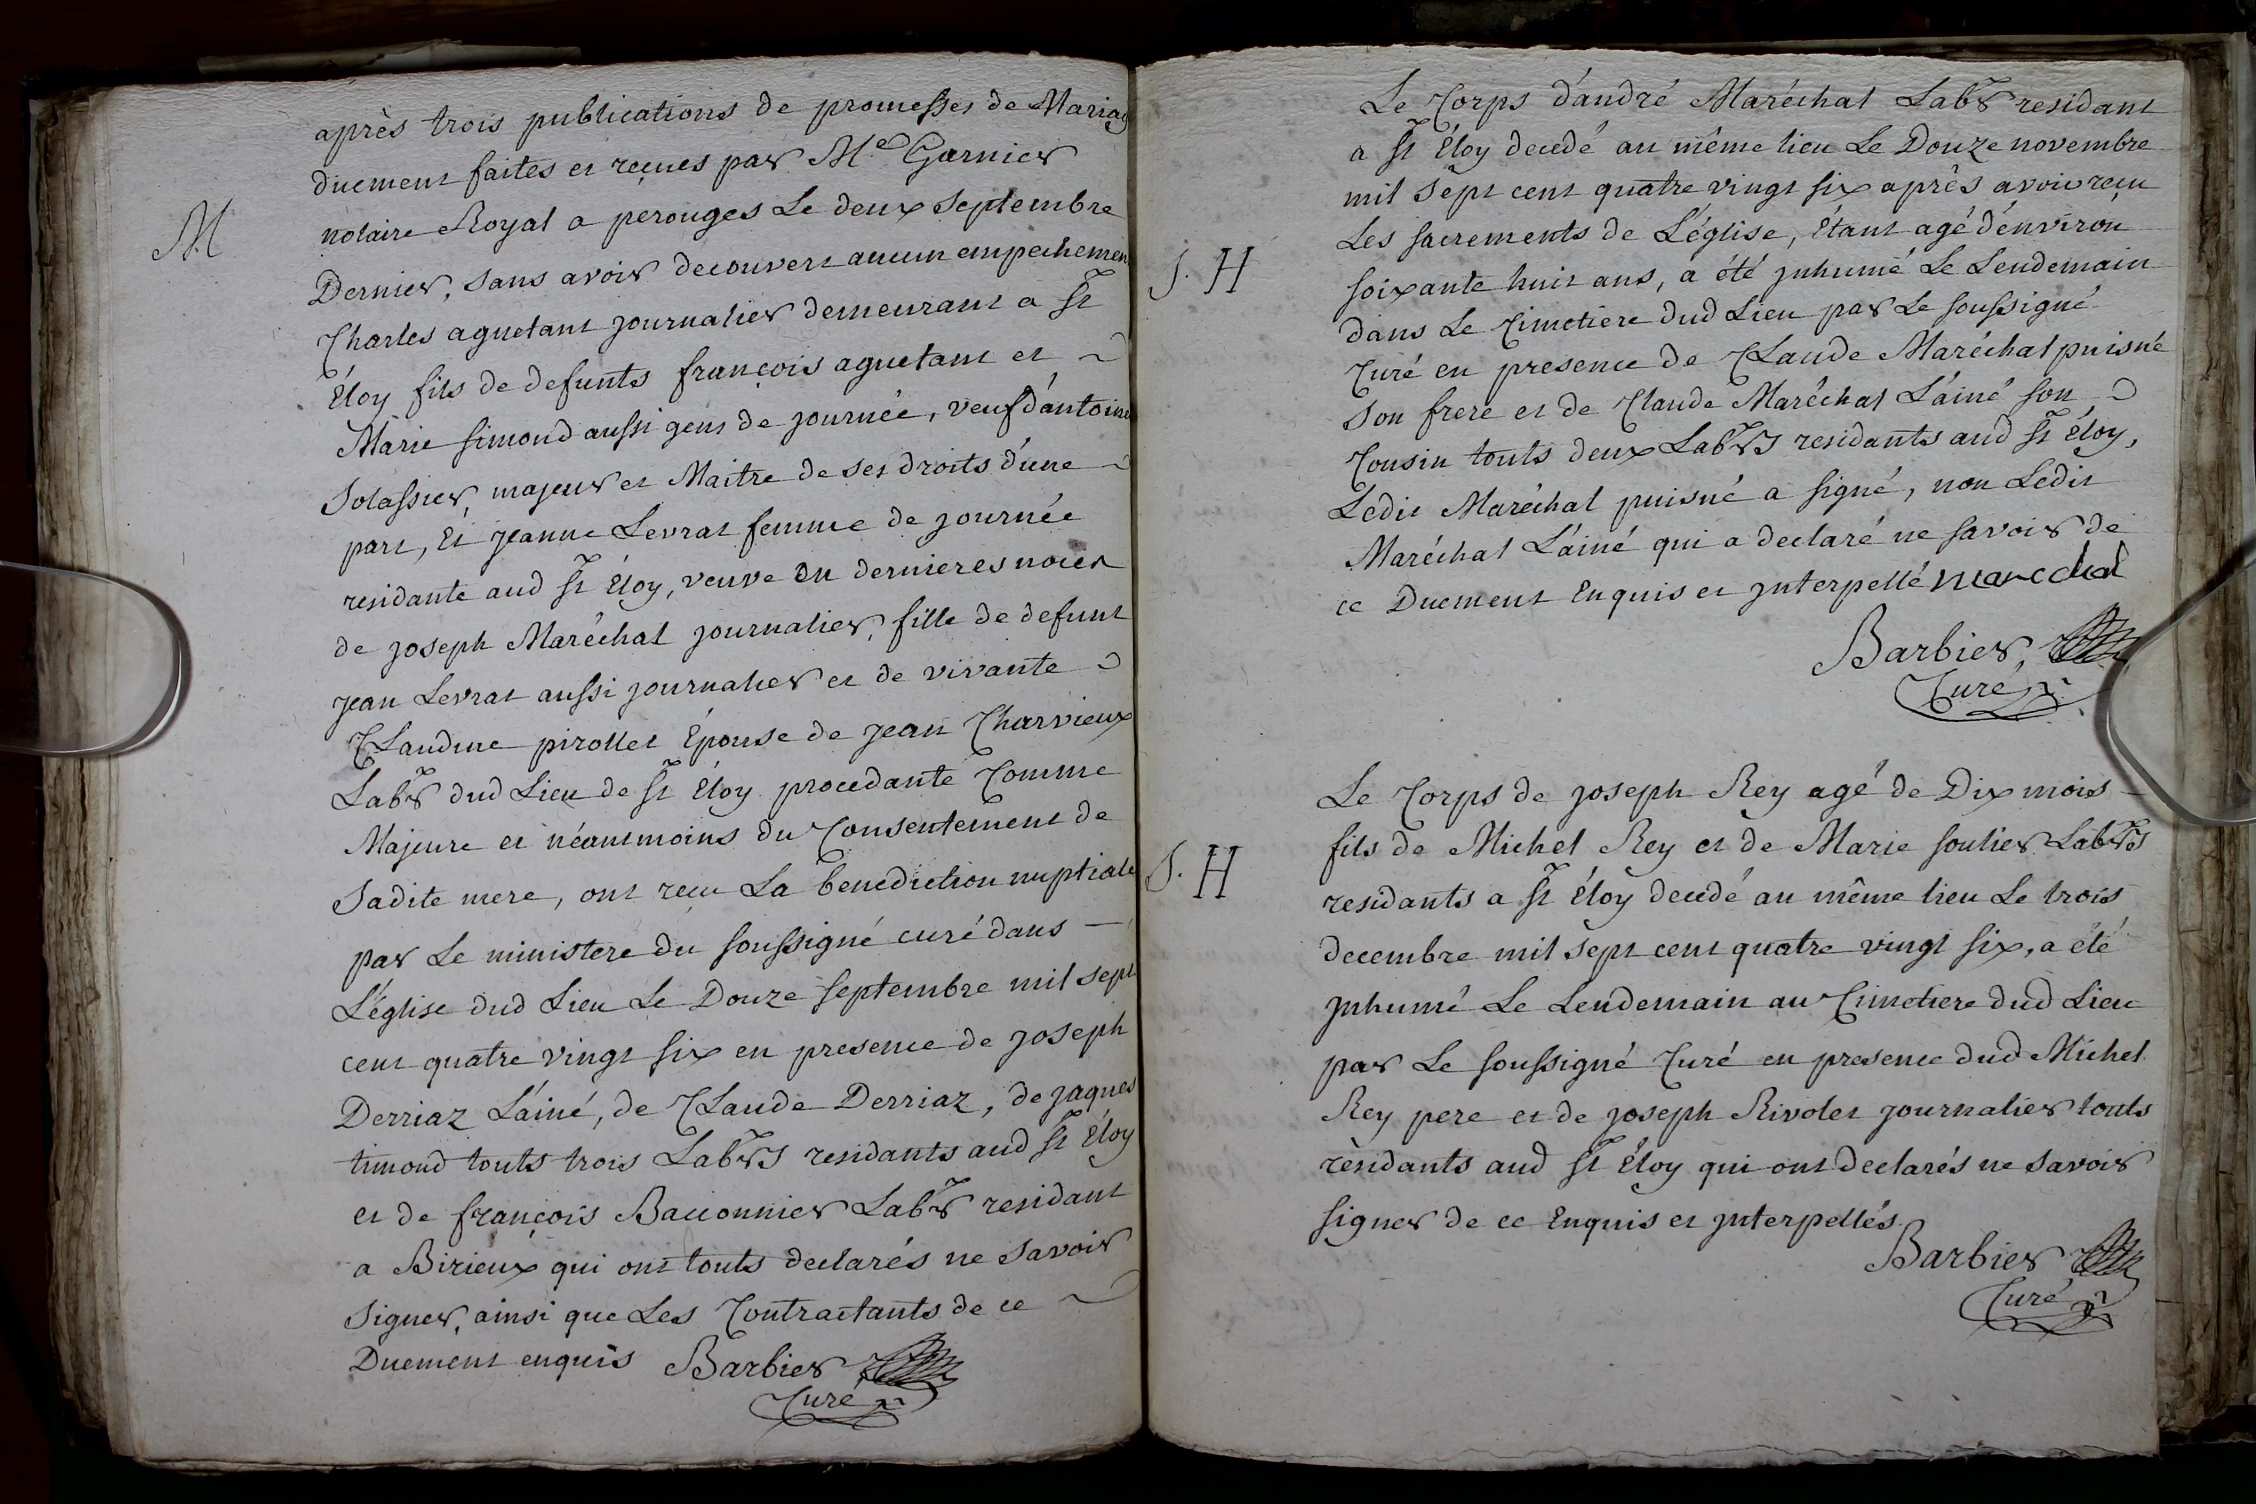 après trois publications de promesses de Mariag
duement faites et reçues par Me Garnier
notaire Royal a perouges Le deux septembre
M
Dernier, sans avoir decouvert aucun empechemen
Charles aguetant journalier demeurant a St
Éloy fils de defunts françois aguetant et
Marie simond aussi gens de journée, veuf d'antoine
Solassier, majeur et Maitre de ses droits d'une
part, Et jeanne Levrat femme de journée
residante aud St Éloy, veuve en dernieres noces
de joseph Maréchal journalier, fille de defunt
jean Levrat aussi journalier et de vivante
Claudine pirollet Épouse de jean Charvieux
Labr dud Lieu de St Éloy procedante Comme
Majeure et néantmoins du Consentement de
Sadite mere, ont reçu La benediction nuptiale
par Le ministere du soussigné curé dans
L'église dud Lieu Le Douze septembre mil sept
cent quatre vingt six en presence de joseph
Derriaz L'ainé, de Claude Derriaz, de jaques
timond touts trois Labrs residants aud St Éloy
et de françois Bacconnier Labr residant
a Birieux qui ont touts declarés ne savoir
signer, ainsi que Les Contractants de ce
Duement enquis Barbier
Curé
Le Corps d'andré Maréchal Labr residant
a St Éloy decedé au même lieu Le Douze novembre
mil sept cent quatre vingt six après avoir reçu
Les sacrements de L'église, Étant agé d'environ
S. H
soixante huit ans, a été jnhumé Le Lendemain
dans Le Cimetiere dud Lieu par Le soussigné
Curé en presence de Claude Maréchal puisné
son frere et de Claude Maréchal L'ainé son
Cousin touts deux Labrs residants aud St Éloy,
Ledit Maréchal puisné a signé, non Ledit
Maréchal L'ainé qui a declaré ne savoir de
ce Duement Enquis et jnterpellé marechal
Barbier,
Curé
Le Corps de joseph Rey agé de Dix mois
fils de Michel Rey et de Marie soulier Labrs
S. H
residants a St Éloy decedé au même lieu Le trois
decembre mil sept cent quatre vingt six, a été
jnhumé Le Lendemain au Cimetiere dud Lieu
par Le soussigné Curé en presence dud Michel
Rey pere et de joseph Rivolet journalier touts
residants aud St Éloy qui ont declarés ne savoir
signer de ce Enquis et jnterpellés.
Barbier
Curé